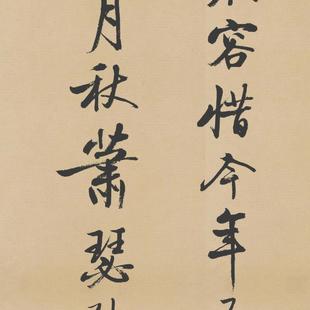 容惜今年
月秋蕭瑟